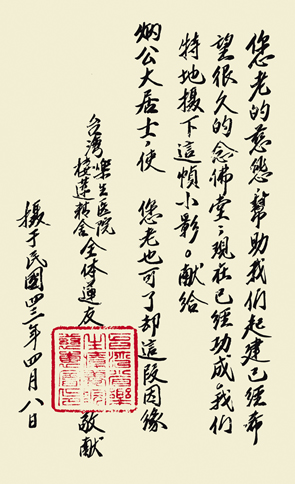 您老的慈悲，幫助我們起建已經希
望很久的念佛堂；現在已經功成，我們
特地攝下這幀小影。獻給
炳公大居士，使　您老也可了却這段因緣
台灣樂生医院
棲蓮精舍全体蓮友　敬獻
攝于民國四三年四月八日